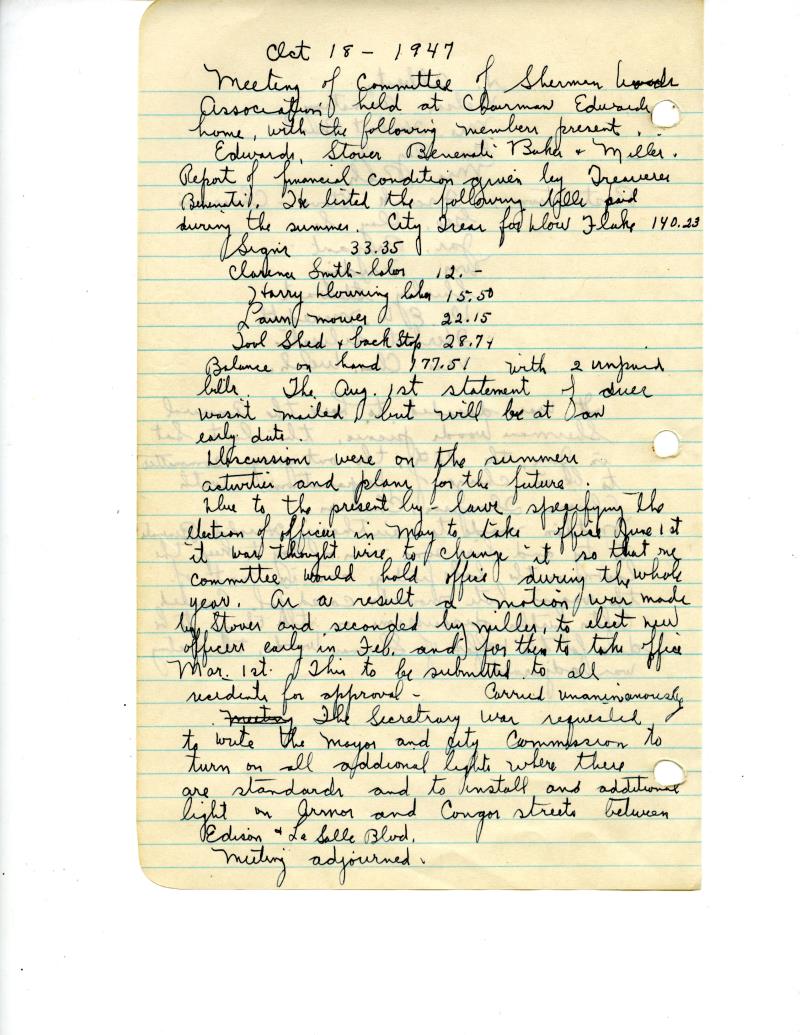 Oct 18 - 1947
Meeting of Committee of Sherman Woods
Association held at Chairman Edwards
home, with the following members present.
Edwards, Stover Benenati Baker + Miller.
Report of financial condition given by Treasurer
Benenati. He listed the following bills paid
during the summer. City Treas for Snow 140.23
Signs 33.35
Clarence Smith - labor 12.-
Harry Downing labor 15.50
Lawn mower 22.15
Tool Shed + back stop 28.74
Balance on hand 177.51 with 2 unpaid
bills. The Aug. 1st statement of dues
wasn't mailed but will be at an
early date.
Discussions were on the summers
activities and plans for the future.
Due to the present by-laws specifying the
election of officers in May to take office June 1st
it was thought wise to change it so that one
committee would hold office during the whole
year. As a result a motion was made
by Stover and seconded by Miller, to elect new
officers early in Feb. and for them to take office
Mar. 1st. This to be submitted to all
residents for approval - Carried unanimanously
Meeting The Secretrary was requested
to write the Mayor and City Commission to
turn on all addional lights where there
are standards and to install and additional
light on Armor and Congor streets between
Edison + La Salle Blvd.
Meeting adjourned.